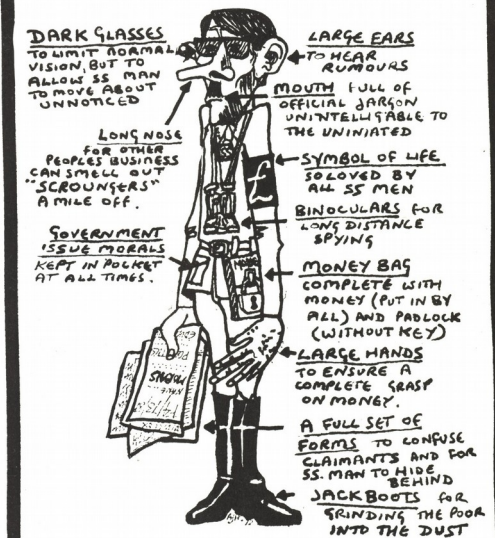 DARK GLASSES
TO LIMIT NORMAL
VISION, BUT TO
ALLOW SS MAN
TO MOVE ABOUT
UNNOTICED
LONG NOSE
FOR OTHER
PEOPLES BUSINESS
CAN SMELL OUT
"SCROUNGERS"
A MILE OFF.
GOVERNMENT
ISSUE MORALS
KEPT IN POCKET
AT ALL TIMES.
LARGE EARS
TO HEAR
RUMOURS
MOUTH FULL OF
OFFICIAL JARGON
UNINTELLIGABLE TO
THE UNINIATED
SYMBOL OF LIFE
SO LOVED BY
ALL SS MEN
£
BINOCULARS FOR
LONG DISTANCE
SPYING
MONEY BAG
COMPLETE WITH
MONEY (PUT IN BY
ALL) AND PADLOCK
(WITHOUT KEY)
LARGE HANDS
TO ENSURE A
COMPLETE GRASP
ON MONEY.
A FULL SET OF
FORMS TO CONFUSE
CLAIMANTS AND FOR
SS. MAN TO HIDE
BEHIND
JACK BOOTS FOR
GRINDING THE POOR
INTO THE DUST